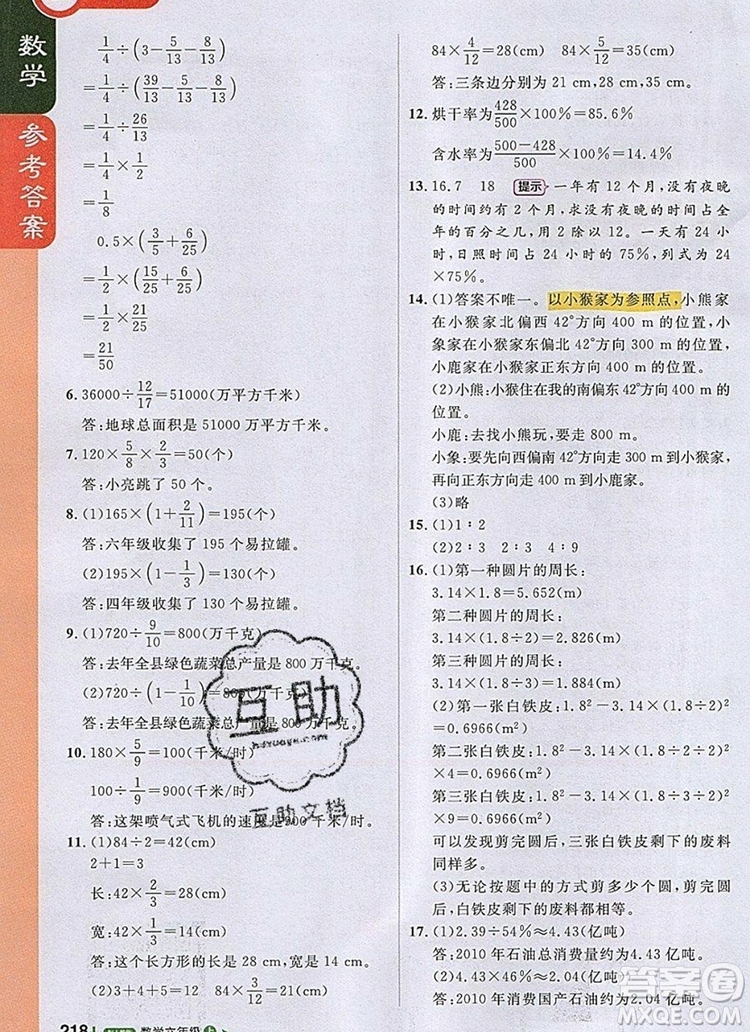 数学
参考答案
1/4÷(3-5/13-8/13)
=1/4÷(39/13-5/13-8/13)
=1/4÷26/13
=1/4×1/2
=1/8
0.5×(3/5+6/25)
=1/2×(15/25+6/25)
=1/2×21/25
=21/50
6. 36000÷12/17=51000(万平方千米)
答:地球总面积是 51000 万平方千米。
7. 120×5/8×2/3=50(个)
答:小亮跳了 50 个。
8. (1)165×(1+2/11)=195(个)
答:六年级收集了 195 个易拉罐。
(2)195×(1-1/3)=130(个)
答:四年级收集了 130 个易拉罐。
9. (1)720÷9/10=800(万千克)
答:去年全县绿色蔬菜总产量是 800 万千克。
(2)720÷(1-1/10)=800(万千克)
答:去年全县绿色蔬菜总产量是 800 万千克。
10. 180×5/9=100(千米/时)
100÷1/9=900(千米/时)
答:这架喷气式飞机的速度是900 千米/时。
11. (1)84÷2=42(cm)
2+1=3
长:42×2/3=28(cm)
宽:42×1/3=14(cm)
答:这个长方形的长是 28 cm,宽是 14 cm。
(2)3+4+5=12
218
数学六年级 上
84×4/12=28(cm) 84×5/12=35(cm)
答:三条边分别为 21 cm,28 cm,35 cm。
12. 烘干率为428/500×100%=85.6%
含水率为(500-428)/500×100%=14.4%
13. 16.7 18 提示 一年有 12 个月,没有夜晚
的时间约有 2 个月,求没有夜晚的时间占全
年的百分之几,用 2 除以 12。一天有 24 小
时,日照时间占 24 小时的 75%,列式为 24
×75%。
14. (1)答案不唯一。以小猴家为参照点,小熊家
在小猴家北偏西 42°方向 400 m 的位置,小
象家在小猴家东偏北 42°方向 300 m 的位置,
小鹿家在小猴家正东方向 400 m 的位置。
(2)小熊:小猴住在我的南偏东 42°方向 400 m
的位置。
小鹿:去找小熊玩,要走 800 m。
小象:要先向西偏南 42°方向走 300 m到小猴家,
再向正东方向走 400 m到小鹿家。
(3)略
15. (1)1∶2
(2)2∶3 2∶3 4∶9
16. (1)第一种圆片的周长:
3.14×1.8=5.652(m)
第二种圆片的周长:
3.14×(1.8÷2)=2.826(m)
第三种圆片的周长:
3.14×(1.8÷3)=1.884(m)
(2)第一张白铁皮:1.8²-3.14×(1.8÷2)²
=0.6966(m²)
第二张白铁皮:1.8²-3.14×(1.8÷2÷2)²
×4=0.6966(m²)
第三张白铁皮:1.8²-3.14×(1.8÷3÷2)²
×9=0.6966(m²)
可以发现剪完圆后,三张白铁皮剩下的废料
同样多。
(3)无论按题中的方式剪多少个圆,剪完圆
后,白铁皮剩下的废料都相等。
17. (1)2.39÷54%≈4.43(亿吨)
答:2010 年石油总消费量约为4.43 亿吨。
(2)4.43×46%≈2.04(亿吨)
答:2010 年消费国产石油约为2.04 亿吨。
互助
互助文档
答案圈